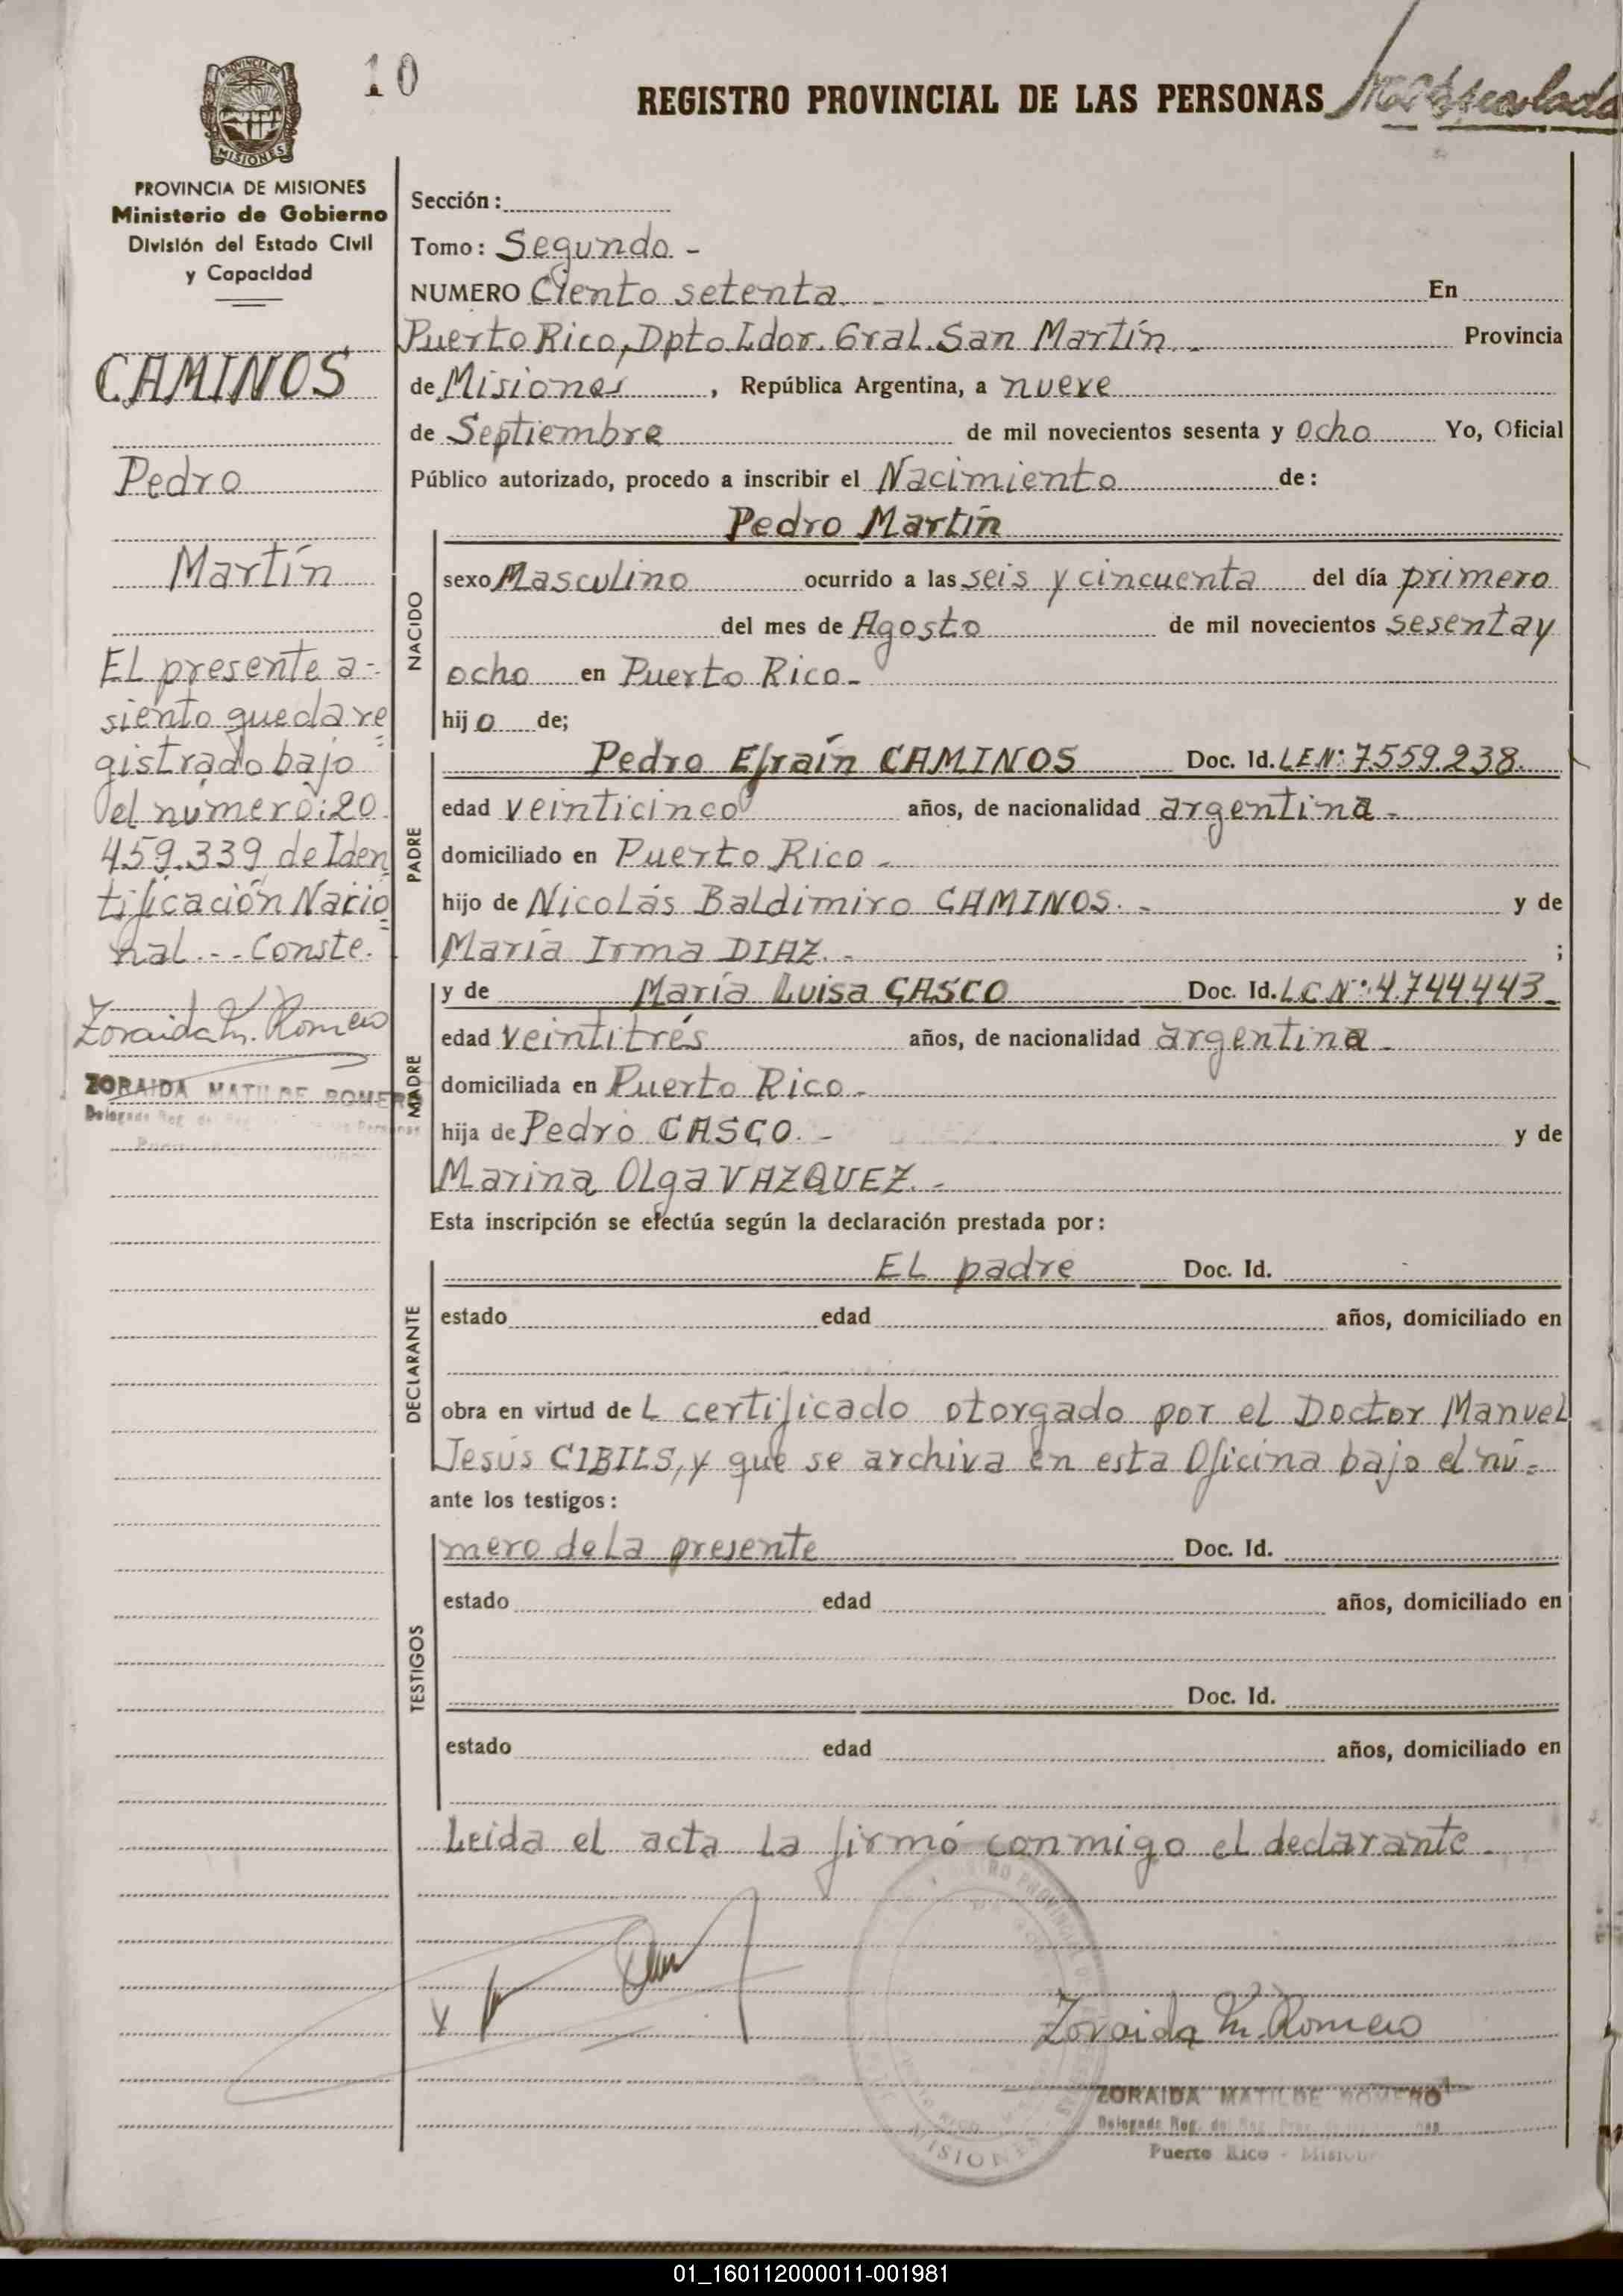 10
REGISTRO PROVINCIAL DE LAS PERSONAS
PROVINCIA DE
MISIONES
PROVINCIA DE MISIONES
Ministerio de Gobierno
División del Estado Civil
y Capacidad
CAMINOS
Pedro
Martín
EL presente a-
siento queda re
gistrado bajo
el número:20
459.339 de Iden
tificación Nacio
nal.-- Conste.
Zoraida M. Romero
ZORAIDA MATILDE ROMERO
Sección:
Tomo: Segundo -
NUMERO Ciento setenta. - En
Puerto Rico, Dpto Ldor. Gral. San Martín. - Provincia
de Misiones, República Argentina, a nueve
de Septiembre de mil novecientos sesenta y ocho Yo, Oficial
Público autorizado, procedo a inscribir el Nacimiento de:
Pedro Martín
NACIDO
sexo Masculino ocurrido a las seis y cincuenta del día primero
del mes de Agosto de mil novecientos sesenta y
ocho en Puerto Rico -
hijo de;
PADRE
Pedro Efraín CAMINOS Doc. Id. LEN: 7.559.238.
edad veinticinco años, de nacionalidad argentina -
domiciliado en Puerto Rico -
hijo de Nicolás Baldimiro CAMINOS. - y de
María Irma DIAZ. - ;
MADRE
y de María Luisa CASCO Doc. Id. LC Nº: 4.744.443 -
edad veintitrés años, de nacionalidad argentina -
domiciliada en Puerto Rico -
hija de Pedro CASCO. - y de
Marina Olga VAZQUEZ. -
Esta inscripción se efectúa según la declaración prestada por:
DECLARANTE
EL padre Doc. Id.
estado edad años, domiciliado en
obra en virtud de L certificado otorgado por el Doctor Manuel
Jesús CIBILS, y que se archiva en esta Oficina bajo el nú-
ante los testigos:
TESTIGOS
mero de la presente Doc. Id.
estado edad años, domiciliado en
Doc. Id.
estado edad años, domiciliado en
Leida el acta la firmó conmigo el declarante -
Zoraida M. Romero
ZORAIDA MATILDE ROMERO
Puerto Rico - Misiones
MISIONES
01_160112000011-001981